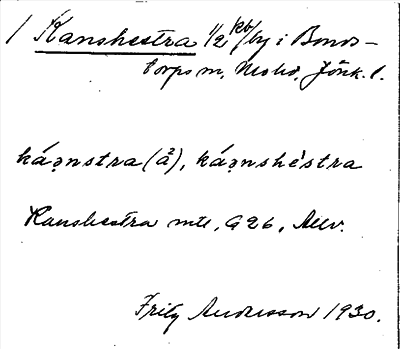 / Kanshestra 1/2 kb/by i Bonds-
torps sn, Mo hd, Jönk. l.
káǝnstra (å²), káǝnshèstra
Kanshestra mtl, G 26, Allv.
Fritz Andersson 1930.